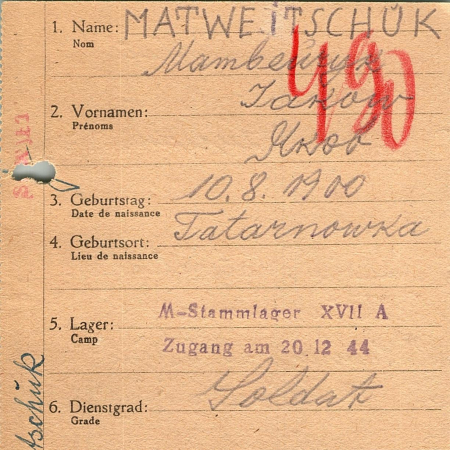 1. Name: MATWEITSCHUK
Nom
490
Матвейчук
2. Vornamen: Jakow
Prénoms
Яков
3. Geburtstag: 10.8.1900
Date de naissance
4. Geburtsort: Tatarnowka
Lieu de naissance
5. Lager: M-Stammlager XVII A
Camp
Zugang am 20.12 44
6. Dienstgrad: Soldat
Grade
tschuk